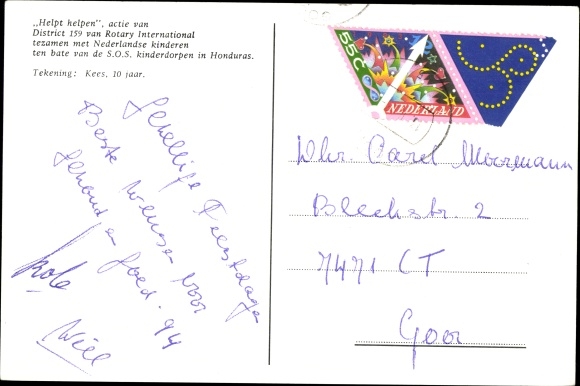 „Helpt helpen”, actie van
District 159 van Rotary International
tezamen met Nederlandse kinderen
ten bate van de S.O.S. kinderdorpen in Honduras.
Tekening: Kees, 10 jaar.
Gezellige Feestdagen
Beste wensen voor
gezond en goed. 94
Will
55c
NEDERLAND
Dhr. Carel Moormann
Bleekstr. 2
7471 CT
Goor